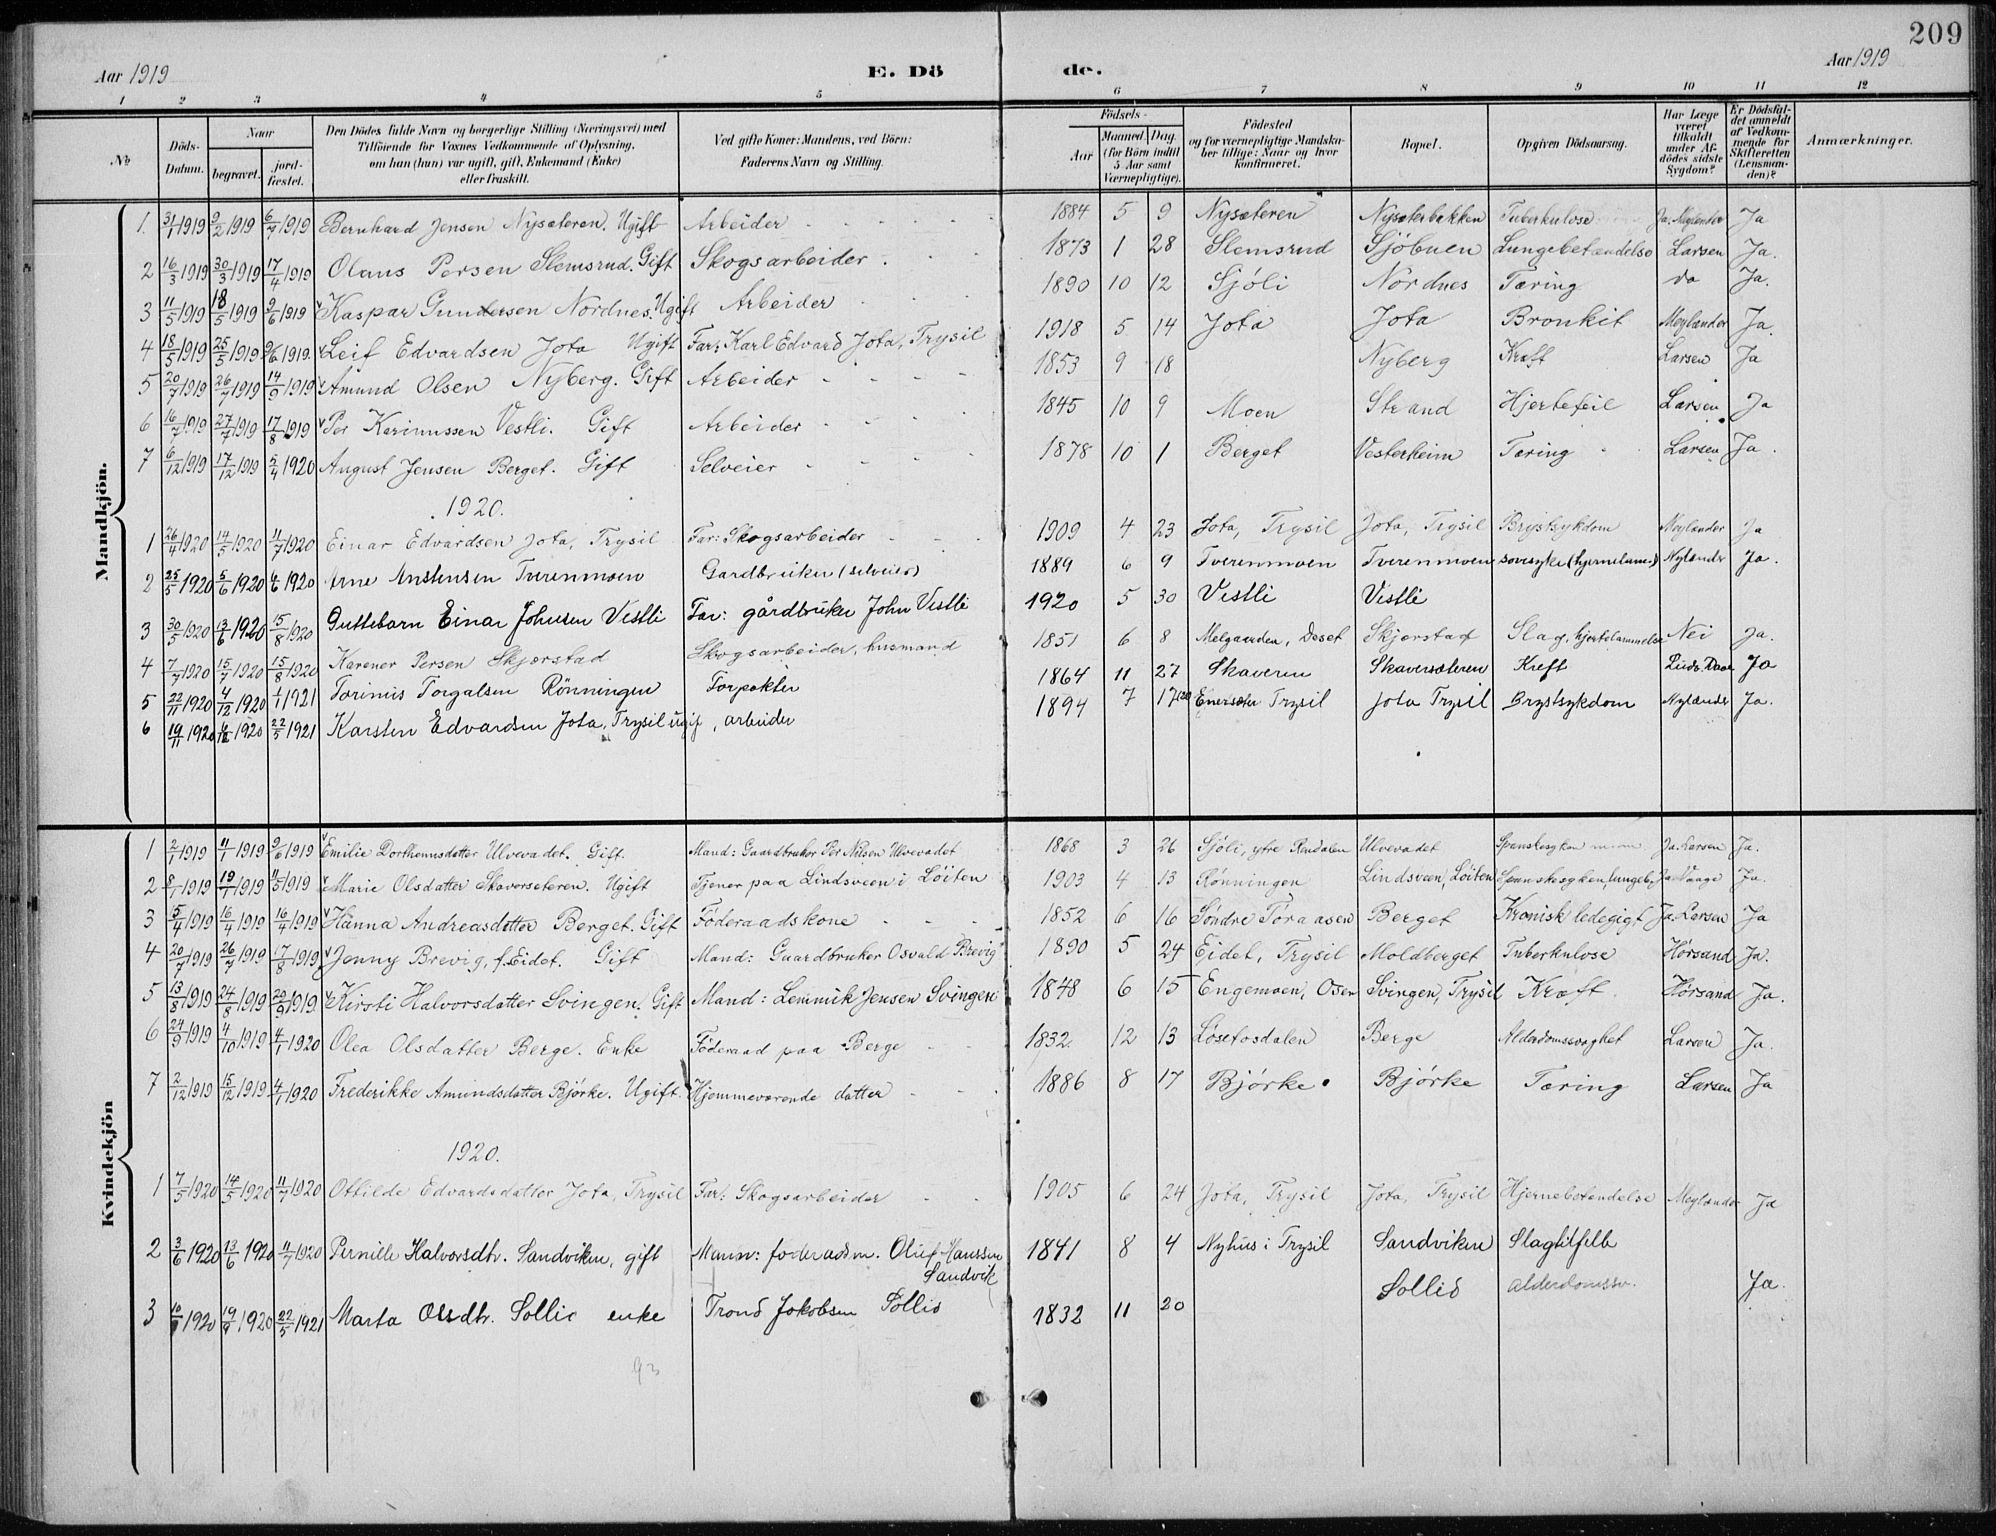 209
Aar 1919 E. Dö de. Aar 1919
1 2 3 4 5 6 7 8 9 10 11 12
No
Döds-Datum.
Naar
begravet.
jord-fæstet.
Den Dödes fulde Navn og borgerlige Stilling (Næringsvei) med
Tilföiende for Voxnes Vedkommende af Oplysning,
om han (hun) var ugift, gift, Enkemand (Enke)
eller fraskilt.
Ved gifte Koner: Mandens, ved Börn:
Faderens Navn og Stilling.
Födsels-
Aar
Maaned. Dag.
(for Börn indtil
5 Aar samt
Værnepligtige).
Födested
og for værnepligtige Mandskaber tillige: Naar og hvor
konfirmeret.
Bopæl.
Opgiven Dödsaarsag.
Har Læge
været
tilkaldt
under Afdödes sidste
Sygdom?
Er Dödsfaldet anmeldt
af Vedkommende for
Skifteretten
(Lensmanden)?
Anmærkninger.
Mandkjön.
1. 31/1 1919 9/2 1919 6/7 1919 Bernhard Jensen Nysæteren. Ugift Arbeider 1884 5 9 Nysæteren Nysæterbakken Tuberkulose Ja. Meylænder Ja
2 16/3 1919 30/3 1919 17/4 1919 Olaus Persen Slemsrud. Gift Skogsarbeider 1873 1 28 Slemsrud Sjöbuen Lungebetændelse Larsen Ja.
3 11/5 1919 18/5 1919 9/6 1919 Kaspar Gundersen Nordnes. Ugift Arbeider 1890 10 12 Sjöli Nordnes Tæring do Ja.
4 18/5 1919 25/5 1919 9/6 1919. Leif Edvardsen Jota Ugift Far: Karl Edvard Jota, Trysil 1918 5 14 Jota Jota Bronkit Meylænder Ja.
5 20/7 1919 26/7 1919 14/9 1919 Amund Olsen Nyberg. Gift Arbeider 1853 9 18 Nyberg Kræft Larsen Ja
6 16/7 1919 27/7 1919 17/8 1919 Per Karinussen Vestli. Gift Arbeider 1845 10 9 Moen Strand Hjertefeil Larsen Ja
7 6/12 1919 17/12 1919 5/4 1920 August Jensen Berget. Gift Selveier 1878 10 1 Berget Vesterheim Tæring Larsen Ja.
1920.
1 26/4 1920 14/5 1920 11/7 1920 Einar Edvardsen Jota, Trysil Far: Skogsarbeider 1909 4 23 Jota, Trysil Jota, Trysil Brystsykdom Meylænder Ja
2 25/5 1920 5/6 1920 4/6 1920 Arne Anstensen Tverenmoen Gardbruker (selveier) 1889 6 9 Tverenmoen Tverenmoen sovesyke (hjernelam.) Nylænder Ja.
3 30/5 1920 13/6 1920 15/8 1920 Guttebarn Einar Johnsen Vestli Far: gårdbruker John Vestli 1920 5 30 Vestli Vestli
4 7/7 1920 15/7 1920 15/8 1920 Karener Persen Skjerstad Skogsarbeider, husmand 1851 6 8 Melgaarden, Deset Skjerstad Slag, hjertelammelse Nei Ja.
5 22/11 1920 4/12 1920 1/1 1921 Torinus Torgalsen Rönningen Forpakter 1864 11 27 Skaveren Skaversæteren Kreft Ja
6 19/11 1920 1920 22/5 1921 Karsten Edvardsen Jota, Trysil ugif, arbeider 1894 7 17 Trysil Jota Trysil Brystsykdom Nylænder Ja.
Kvindekjön
1 2/1 1919 11/1 1919 9/6 1919 Emilie Dorthennsdatter Ulvevadet. Gift. Mand: Gaardbruker Per Nilsen Ulvevadet 1868 3 26 Sjöli, ytre Rendalen Ulvevadet Spanskesyken Ja. Larsen Ja.
2 8/1 1919 19/1 1919 11/5 1919 Marie Olsdatter Skaversæteren. Ugift Tjener paa Lindsveen i Löiten 1903 4 13 Rönningen Lindsveen, Löiten Spanskesyken, lungeb. Ja Vaage Ja
3 5/4 1919 16/4 1919 16/4 1919 Hanna Andreasdatter Berget. Gift Föderaadskone 1852 6 16 Söndre Toraasen Berget Kronisk ledegigt Ja. Larsen Ja
4 20/7 1919 26/7 1919 17/8 1919 Jenny Brevig, f. Eidet. Gift Mand: Gaardbruker Osvald Brevig 1890 5 24 Eidet, Trysil Moldberget Tuberkulose Hörsand Ja.
5 13/8 1919 24/8 1919 20/9 1919. Kirsti Halvorsdatter Svingen. Gift Mand: Lemmik Jensen Svingen 1848 6 15 Engemoen, Osen Svingen, Trysil Kræft. Hörsand Ja.
6 24/9 1919 4/10 1919 4/1 1920 Olea Olsdatter Berge. Enke Föderaad paa Berge 1832. 12 13 Lösetosdalen Berge Alderdomssvaghet Larsen Ja.
7 2/12 1919 15/12 1919 4/1 1920 Frederikke Amundsdatter Björke. Ugift. Hjemmeværende datter 1886 8 17 Björke Björke Tæring Larsen Ja
1920.
1 7/5 1920 14/5 1920 11/7 1920 Ottilde Edvardsdatter Jota, Trysil Far: Skogsarbeider 1905 6 24 Jota, Trysil Jota, Trysil Hjernebetændelse Meylænder Ja
2 3/6 1920 13/6 1920 11/7 1920 Pernille Halvorsdtr. Sandviken, gift Mann: foderaadsm. Oluf Hanssen Sandvik 1841 8 4 Nyhus i Trysil Sandviken Slagtilfelle
3 1920 19/9 1920 22/5 1921 Marta Olsdtr. Sollie enke Trond Jakobsen Sollid 1832 11 20 Sollid alderdomssv. Ja.
93